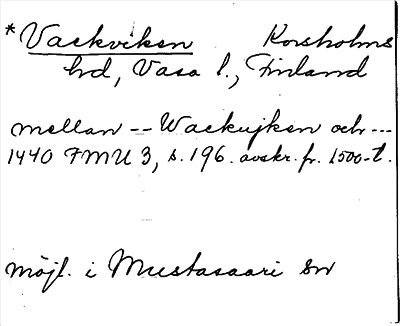 *Vackviken Korsholms
hd, Vasa l., Finland
mellan -- Wackujken och ---
1440 FMU 3, s. 196. avskr. fr. 1500-t.
möjl. i Mustasaari sn